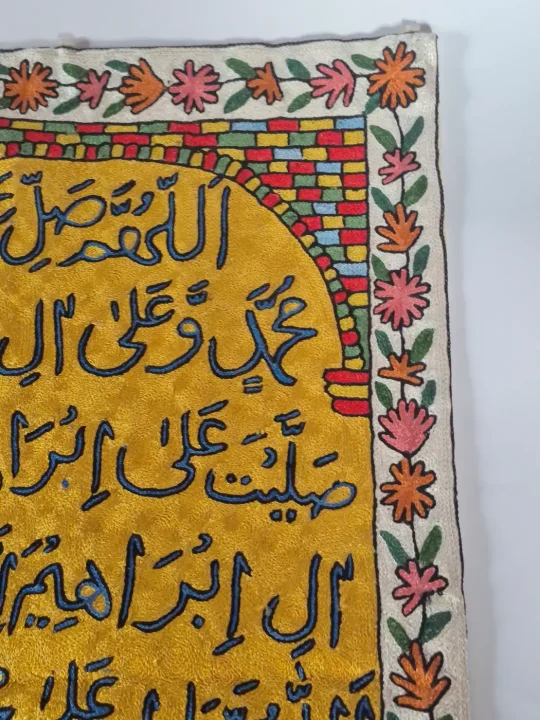 اَللّٰهُمَّ صَلِّ
مُحَمَّدٍ وَّعَلٰی اٰلِ
صَلَّیْتَ عَلٰی اِبْرَا
اٰلِ اِبْرَاهِیْمَ